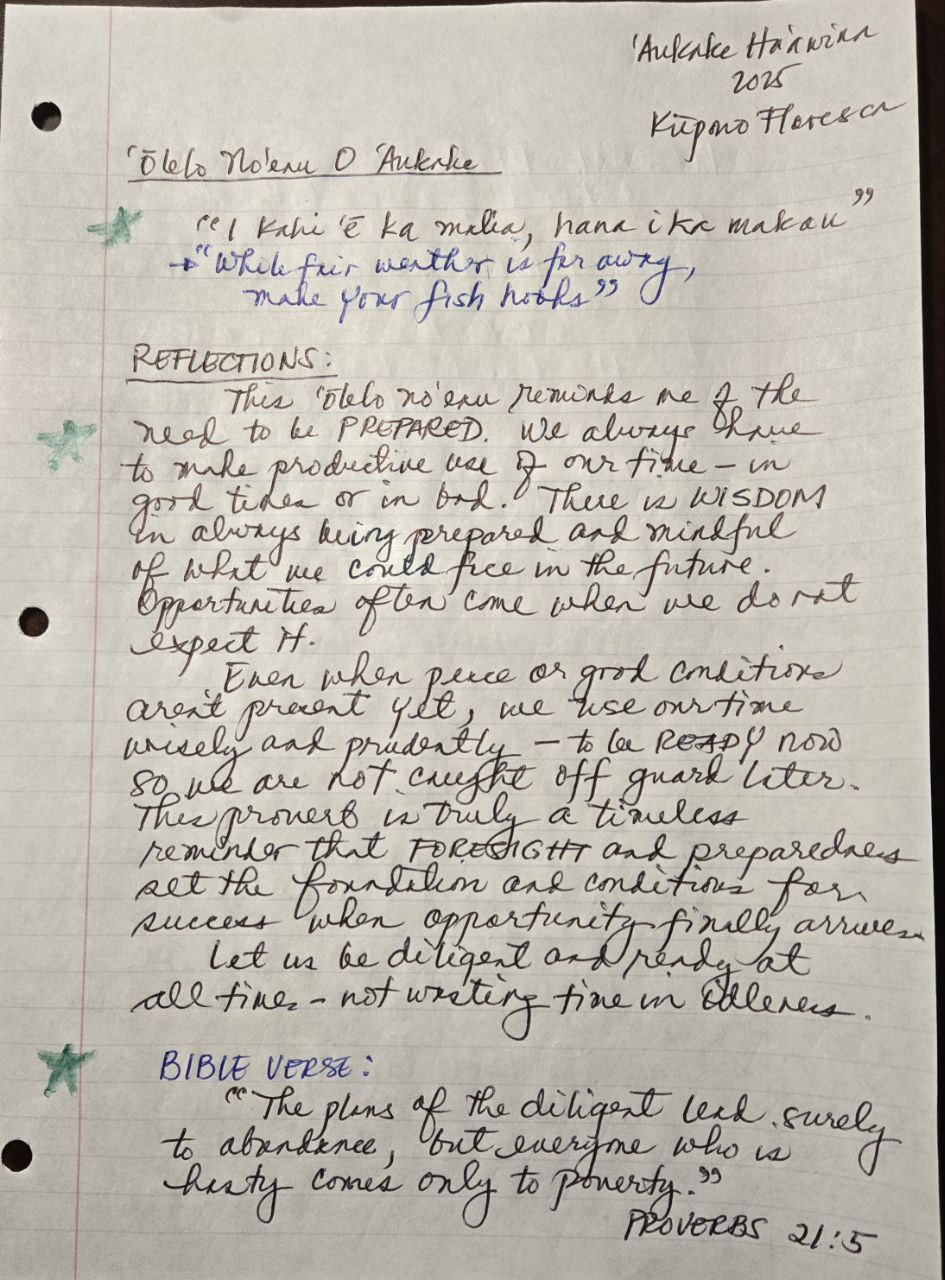 'Aukake Ha'awina
2025
Kūpono Floresca
'Ōlelo No'eau O 'Aukake
"I kahi 'ē ka malia, hana i ka makau"
→"While fair weather is far away,
make your fish hooks"
REFLECTIONS:
This 'ōlelo no'eau reminds me of the
need to be PREPARED. We always have
to make productive use of our time – in
good times or in bad. There is WISDOM
in always being prepared and mindful
of what we could face in the future.
Opportunities often come when we do not
expect it.
Even when peace or good conditions
aren't present yet, we use our time
wisely and prudently – to be READY now
so we are not caught off guard later.
This proverb is truly a timeless
reminder that FORESIGHT and preparedness
set the foundation and conditions for
success when opportunity finally arrives.
Let us be diligent and ready at
all times – not wasting time in idleness.
BIBLE VERSE:
"The plans of the diligent lead surely
to abundance, but everyone who is
hasty comes only to poverty."
PROVERBS 21:5